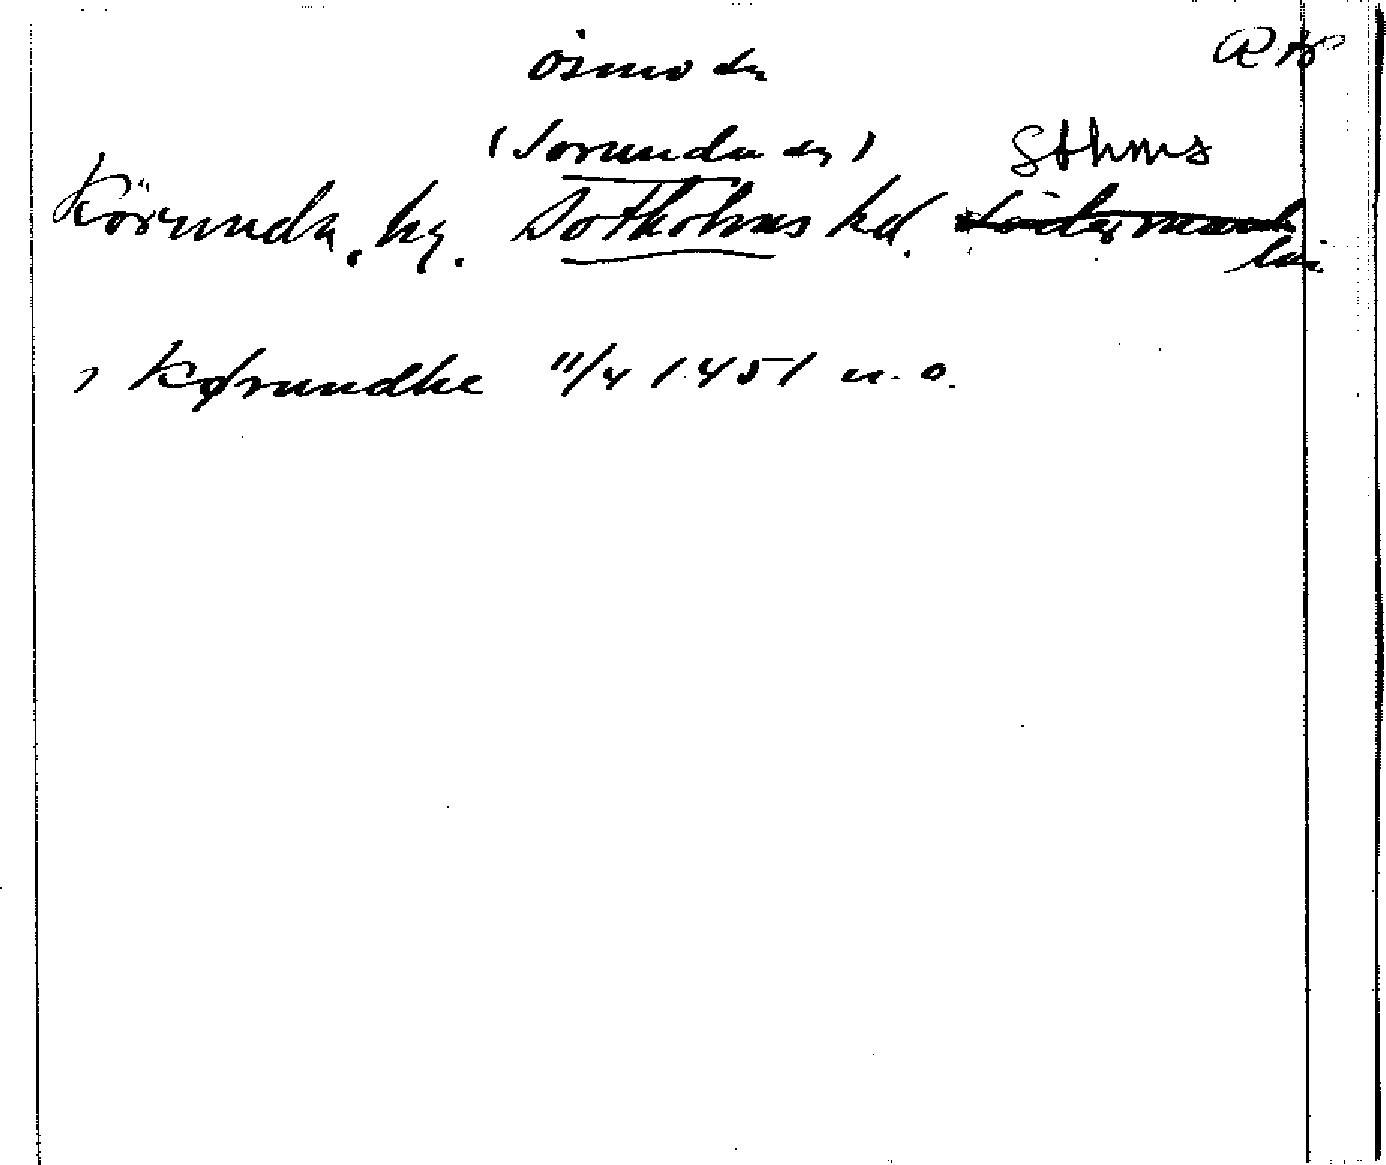 Ösmo sn
(Sorunda sn) Sthms
Körunda, by. Sotholms hd. Södermanl
län.
, Kørundhe 11/4 1451 u. o.